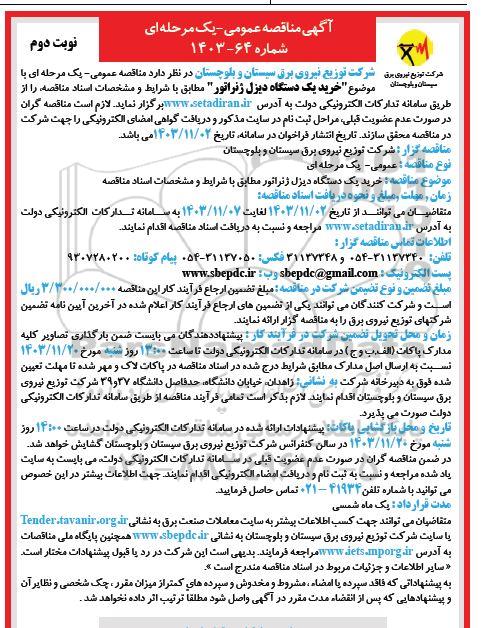 آگهی مناقصه عمومی-یک مرحله ای
شماره ۶۴-۱۴۰۳
نوبت دوم
شرکت توزیع نیروی برق
سیستان و بلوچستان
شرکت توزیع نیروی برق سیستان و بلوچستان در نظر دارد مناقصه عمومی- یک مرحله ای با
موضوع "خرید یک دستگاه دیزل ژنراتور" مطابق با شرایط و مشخصات اسناد مناقصه، را از
طریق سامانه تدارکات الکترونیکی دولت به آدرس www.setadiran.ir برگزار نماید. لازم است مناقصه گران
در صورت عدم عضویت قبلی، مراحل ثبت نام در سایت مذکور و دریافت گواهی امضای الکترونیکی را جهت شرکت
در مناقصه محقق سازند. تاریخ انتشار فراخوان در سامانه، تاریخ ۱۴۰۳/۱۱/۰۲ می باشد.
مناقصه گزار : شرکت توزیع نیروی برق سیستان و بلوچستان
نوع مناقصه : عمومی- یک مرحله ای
موضوع مناقصه : خرید یک دستگاه دیزل ژنراتور مطابق با شرایط و مشخصات اسناد مناقصه
زمان ، مهلت ، مبلغ و نحوه دریافت اسناد مناقصه:
متقاضیـان می تواننـد از تاریخ ۱۴۰۳/۱۱/۰۲ لغایت ۱۴۰۳/۱۱/۰۷ به سـامانه تـدارکات الکترونیکی دولت
به آدرس www.setadiran.ir مراجعه و نسبت به دریافت اسناد مناقصه اقدام نمایند.
اطلاعات تماس مناقصه گزار :
تلفن: ۳۱۱۳۷۳۴۰-۰۵۴ و ۳۱۱۳۷۳۴۸ فکس: ۳۱۱۳۷۰۵۰-۰۵۴ پیام کوتاه: ۹۳۰۷۲۸۰۲۰۰
پست الکترونیک : sbepdc@gmail.com وب : www.sbepdc.ir
مبلغ تضمین و نوع تضمین شرکت در مناقصه : مبلغ تضمین ارجاع فرآیند کار این مناقصه ۳/۳۰۰/۰۰۰/۰۰۰ ریال
اسـت و شرکت کنندگان می توانند یکی از تضمین های ارجاع فرآیند کار اعلام شده در آخرین آیین نامه تضمین
شرکتهای توزیع نیروی برق را به مناقصه گزار ارائه نمایند.
زمان و محل تحویل تضمین شرکت در فرآیند کار : پیشنهاددهندگان می بایست ضمن بارگذاری تصاویر کلیه
مدارک پاکات (الف،ب و ج) در سامانه تدارکات الکترونیکی دولت تا ساعت ۱۳:۰۰ روز شنبه مورخ ۱۴۰۳/۱۱/۲۰
نسـبت به ارسال اصل مدارک مطابق شرایط درج شده در اسناد مناقصه در پاکات لاک و مهر شده تا مهلت تعیین
شده فوق به دبیرخانه شرکت به نشانی: زاهدان، خیابان دانشگاه، حدفاصل دانشگاه ۳۷و۳۹ شرکت توزیع نیروی
برق سیستان و بلوچستان اقدام نمایند. لازم بذکر است تمامی فرآیند مناقصه از طریق سامانه تدارکات الکترونیکی
دولت صورت می پذیرد.
تاریخ و محل بازگشایی پاکات: پیشنهادات ارائه شده در سامانه تدارکات الکترونیکی دولت در ساعت ۱۴:۰۰ روز
شنبه مورخ ۱۴۰۳/۱۱/۲۰ در سالن کنفرانس شرکت توزیع نیروی برق سیستان و بلوچستان گشایش خواهد شد.
در ضمن مناقصه گران در صورت عدم عضویت قبلی در سامانه تدارکات الکترونیکی دولت، می بایست به سایت
یاد شده مراجعه و نسبت به ثبت نام و دریافت امضاء الکترونیکی اقدام نمایند. جهت اطلاعات بیشتر در این خصوص
می توانید با شماره تلفن ۴۱۹۳۴ – ۰۲۱ تماس حاصل فرمایید.
مدت قرارداد : یک ماه شمسی
متقاضیان می توانند جهت کسب اطلاعات بیشتر به سایت معاملات صنعت برق به نشانی Tender.tavanir.org.ir
یا سایت شرکت توزیع نیروی برق سیستان و بلوچستان به نشانی www.sbepdc.ir همچنین پایگاه ملی مناقصات
به آدرس www.iets.mporg.ir مراجعه فرمایند. بدیهی است این شرکت در رد یا قبول پیشنهادات مختار است.
« سایر اطلاعات و جزئیات مربوط در اسناد مناقصه مندرج است ».
به پیشنهاداتی که فاقد سپرده یا امضاء ، مشروط و مخدوش و سپرده های کمتر از میزان مقرر ، چک شخصی و نظایر آن
و پیشنهادهایی که پس از انقضاء مدت مقرر در آگهی واصل شود مطلقاً ترتیب اثر داده نخواهد شد .